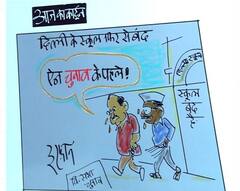 आज का कार्टून
दिल्ली के स्कूल फिर से बंद
ऐन चुनाव के पहले!
स्कूल
बंद
है
इरफ़ान
वि. सभा
चुनाव